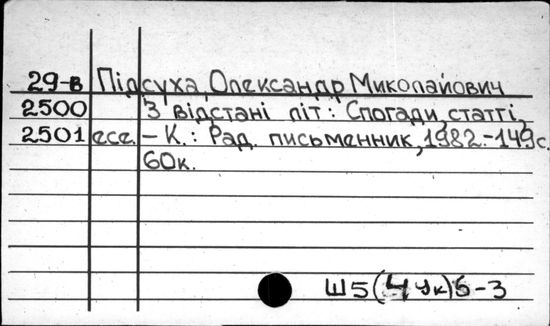 29-в Підсуха, Олександр Миколайович
2500 З відстані літ: Спогади, статті,
2501 есе. – К.: Рад. письменник, 1982.-149с.
60к.
Ш5(4Ук)6-3